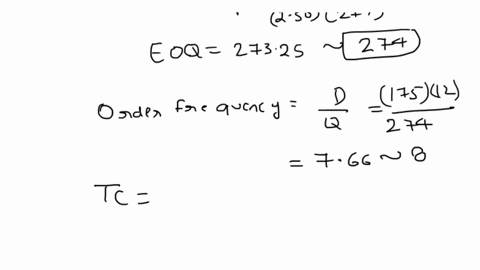 EOQ = 273.25 ~ 274
Order frequency = D/Q = (175)(12)/274
= 7.66 ~ 8
TC =